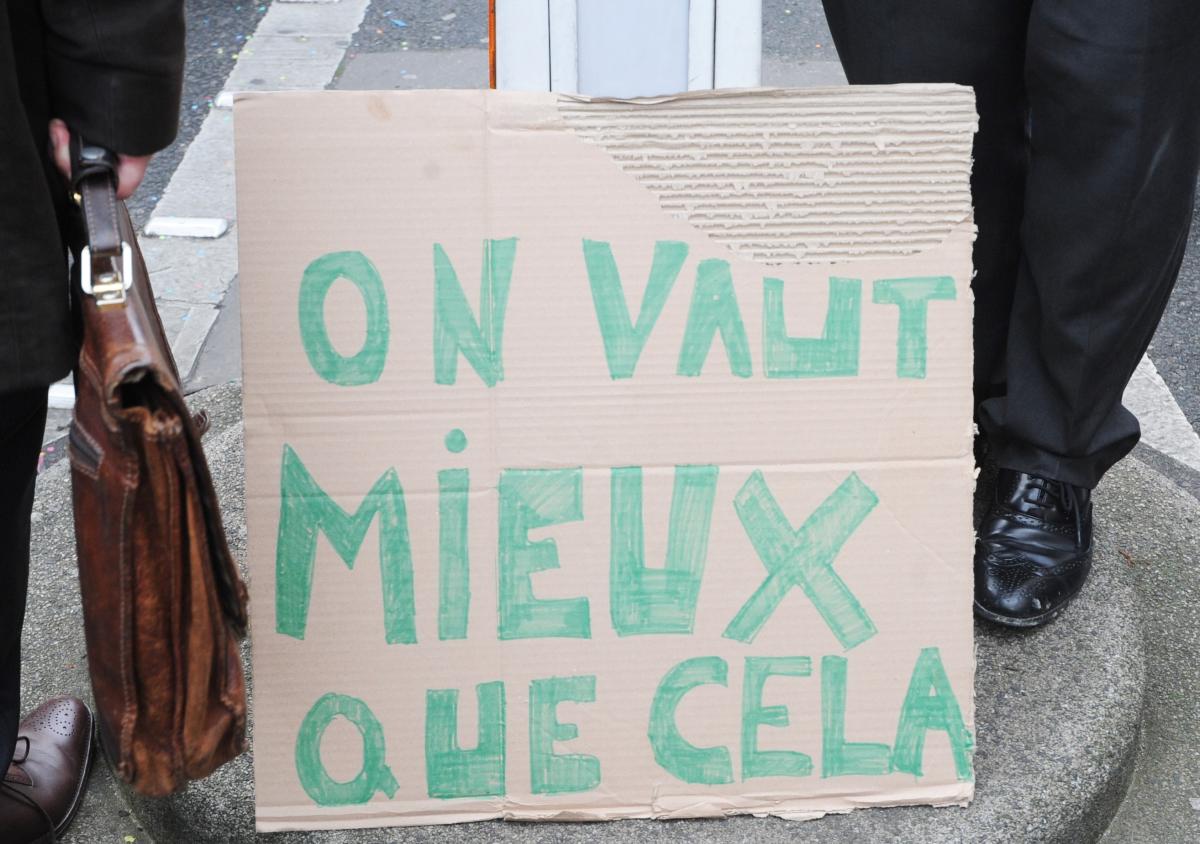 ON VAUT
MiEUX
QUE CELA